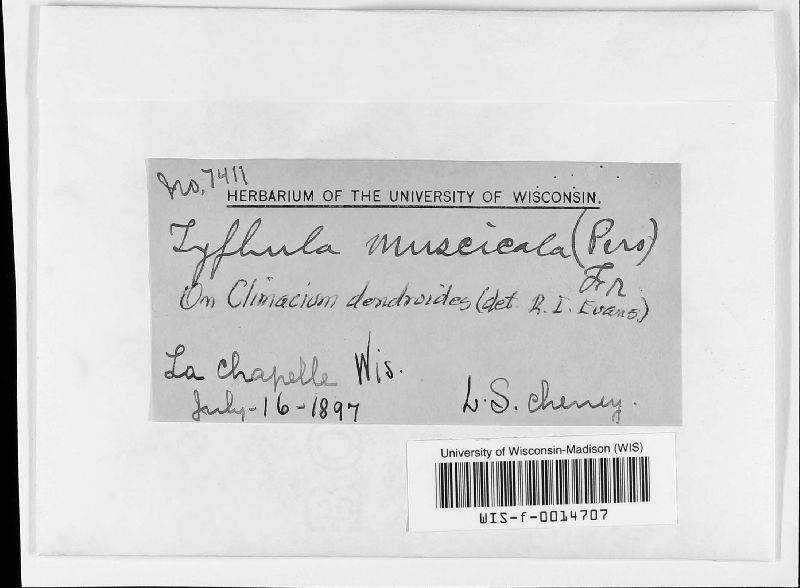 No. 7411
HERBARIUM OF THE UNIVERSITY OF WISCONSIN.
Typhula muscicola (Pers)
Fr.
On Climacium dendroides (det. R. I. Evans.)
La Chapelle Wis.
July-16-1897
L.S. Cheney.
University of Wisconsin-Madison (WIS)
WIS-f-0014707